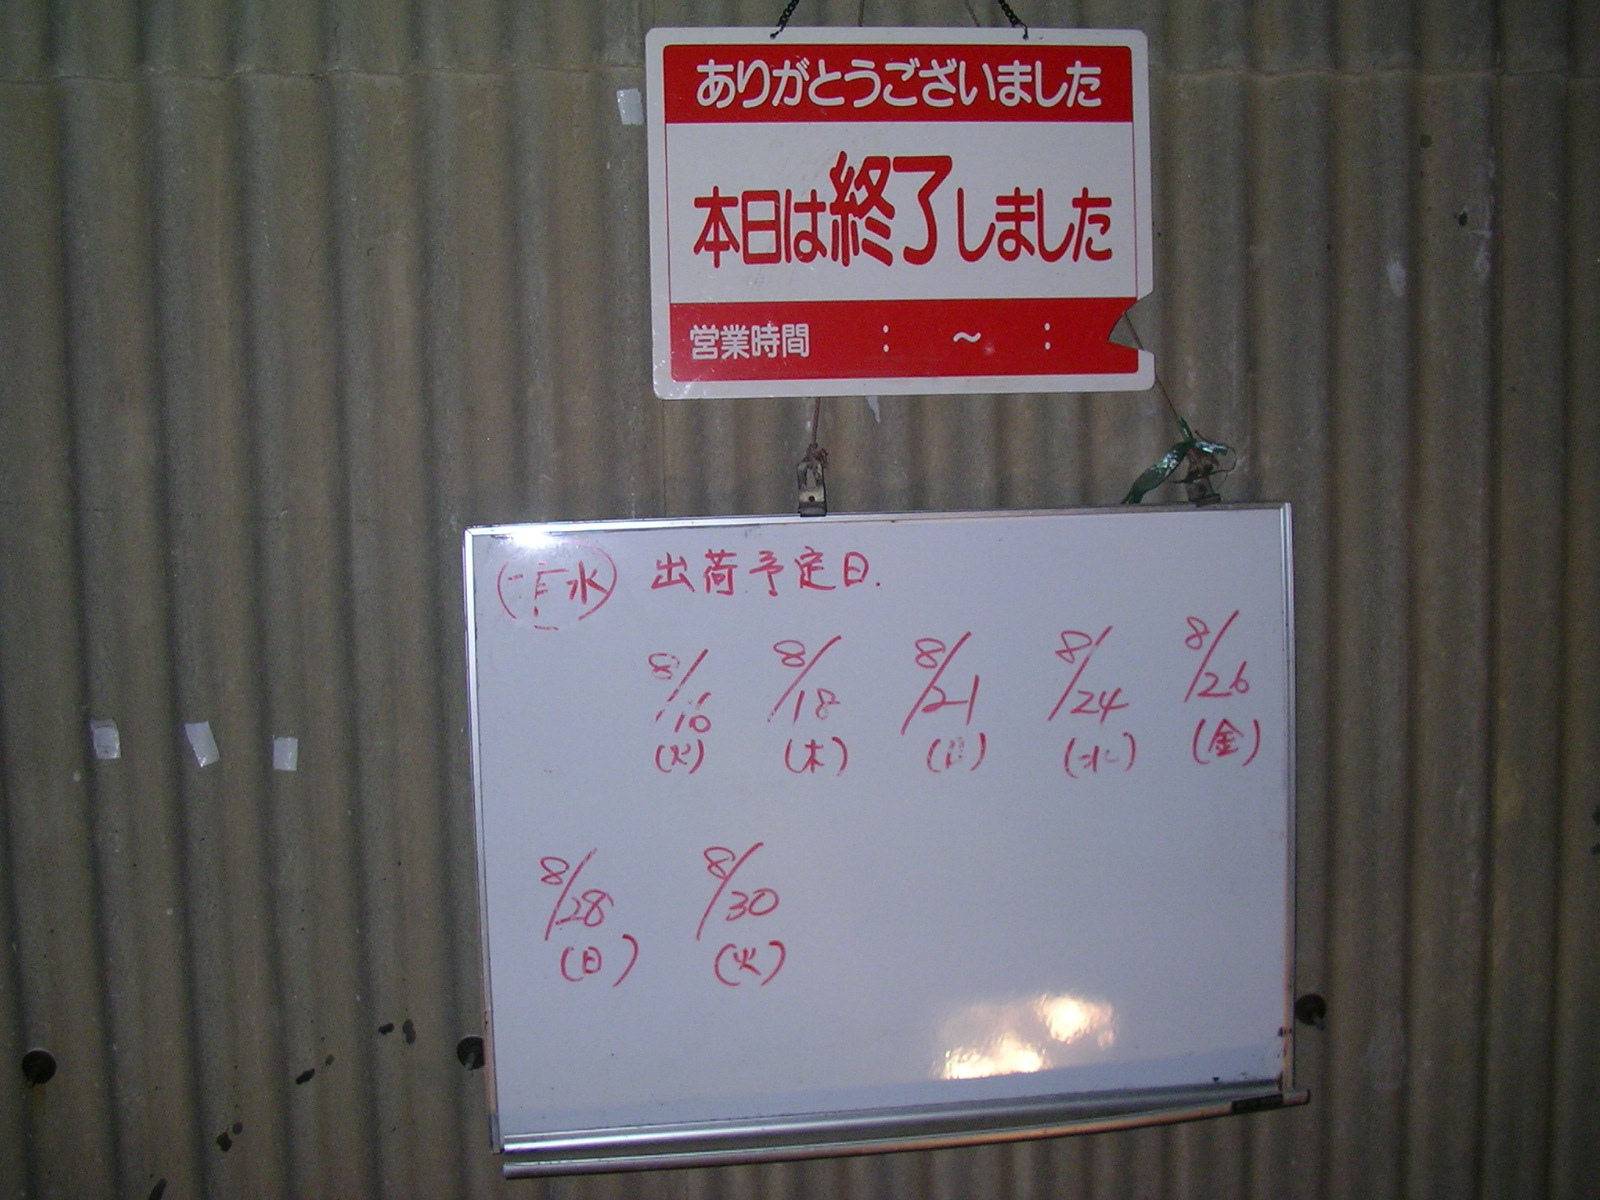 ありがとうございました
本日は終了しました
営業時間 : ～ :
水 出荷予定日.
8/16 8/18 8/21 8/24 8/26
(火) (木) (日) (水) (金)
8/28 8/30
(日) (火)